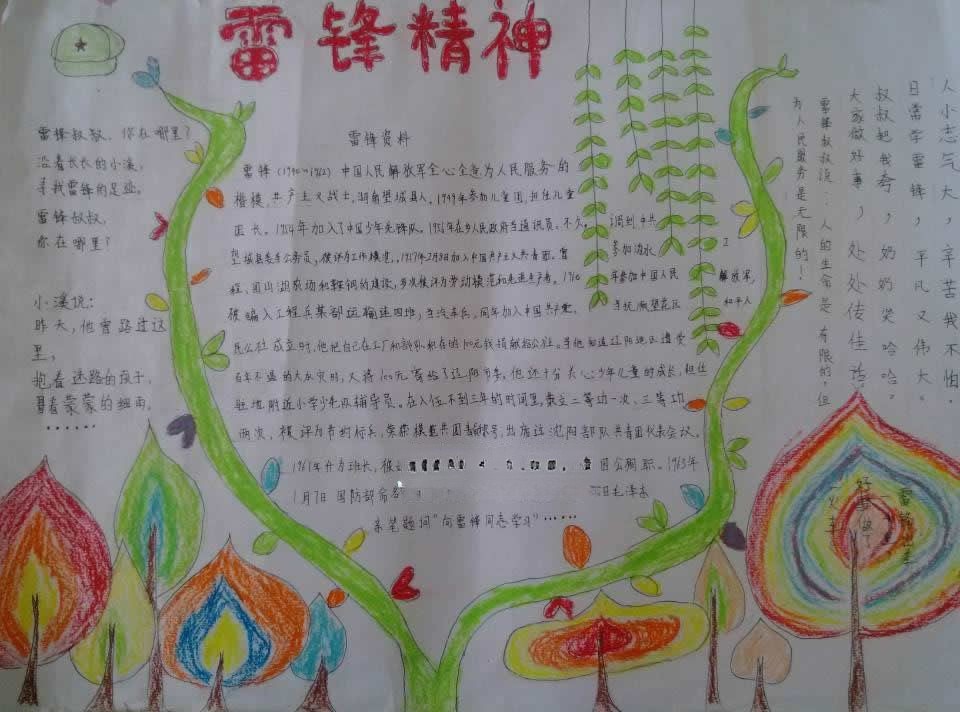 雷锋精神
雷锋叔叔，你在哪里？
沿着长长的小溪，
寻找雷锋的足迹。
雷锋叔叔，
你在哪里？
小溪说：
昨天，他曾路过这
里，
抱着迷路的孩子，
冒着蒙蒙的细雨。
……
雷锋资料
雷锋（1940~1962）中国人民解放军全心全意为人民服务的
楷模，共产主义战士，湖南望城县人。1949年参加儿童团，担任儿童
团长。1954年加入了中国少年先锋队。1956年在乡人民政府当通讯员，不久
调到中共
望城县委当公务员，被评为工作模范，1957年2月8日加入中国共产主义共青团。
参加沩水
工
程、团山湖农场和鞍钢的建设，多次被评为劳动模范和先进生产者。1960
年参加中国人民
解放军，
被编入工程兵某部运输连四班，当汽车兵，同年加入中国共产党。
当抚顺望花区
和平人
民公社成立时，他把自己在工厂和部队积存的100元钱捐献给公社。
百年不遇的大水灾时，又将100元寄给了辽阳市委。他还十分关心少年儿童的成长，担任
驻地附近小学少先队辅导员。在入伍不到三年的时间里，荣立二等功一次、三等功
两次，被评为节约标兵，荣获模范共青团员称号，出席过沈阳部队共青团代表会议。
1961年升为班长，
因公殉职。1963年
1月7日国防部命名
亲笔题词“向雷锋同志学习”……
人小志气大，辛苦我不怕。
日常学雷锋，平凡又伟大。
叔叔把我夸，奶奶笑哈哈。
大家做好事，处处传佳话。
雷锋叔叔说：人的生命是有限的，但
为人民服务是无限的！
雷锋出差
好事做了
一火车